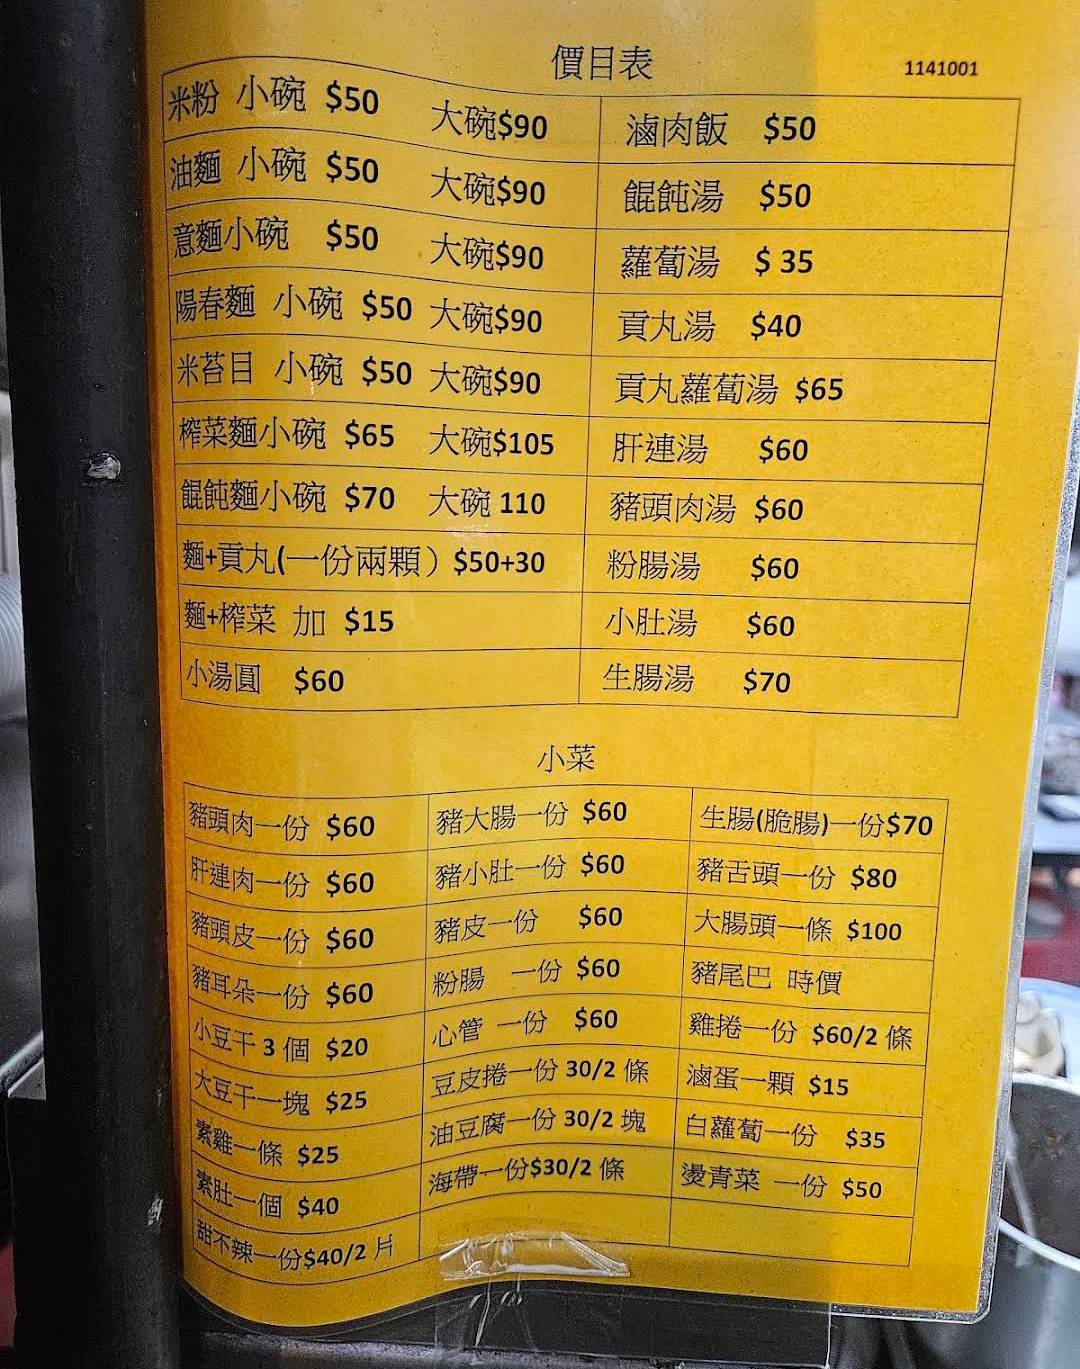 價目表
1141001
米粉 小碗 $50 大碗$90
油麵 小碗 $50 大碗$90
意麵小碗 $50 大碗$90
陽春麵 小碗 $50 大碗$90
米苔目 小碗 $50 大碗$90
榨菜麵小碗 $65 大碗$105
餛飩麵小碗 $70 大碗 110
麵+貢丸(一份兩顆）$50+30
麵+榨菜 加 $15
小湯圓 $60
滷肉飯 $50
餛飩湯 $50
蘿蔔湯 $ 35
貢丸湯 $40
貢丸蘿蔔湯 $65
肝連湯 $60
豬頭肉湯 $60
粉腸湯 $60
小肚湯 $60
生腸湯 $70
小菜
豬頭肉一份 $60
肝連肉一份 $60
豬頭皮一份 $60
豬耳朵一份 $60
小豆干 3 個 $20
大豆干一塊 $25
素雞一條 $25
素肚一個 $40
甜不辣一份$40/2 片
豬大腸一份 $60
豬小肚一份 $60
豬皮一份 $60
粉腸 一份 $60
心管 一份 $60
豆皮捲一份 30/2 條
油豆腐一份 30/2 塊
海帶一份$30/2 條
生腸(脆腸)一份$70
豬舌頭一份 $80
大腸頭一條 $100
豬尾巴 時價
雞捲一份 $60/2 條
滷蛋一顆 $15
白蘿蔔一份 $35
燙青菜 一份 $50